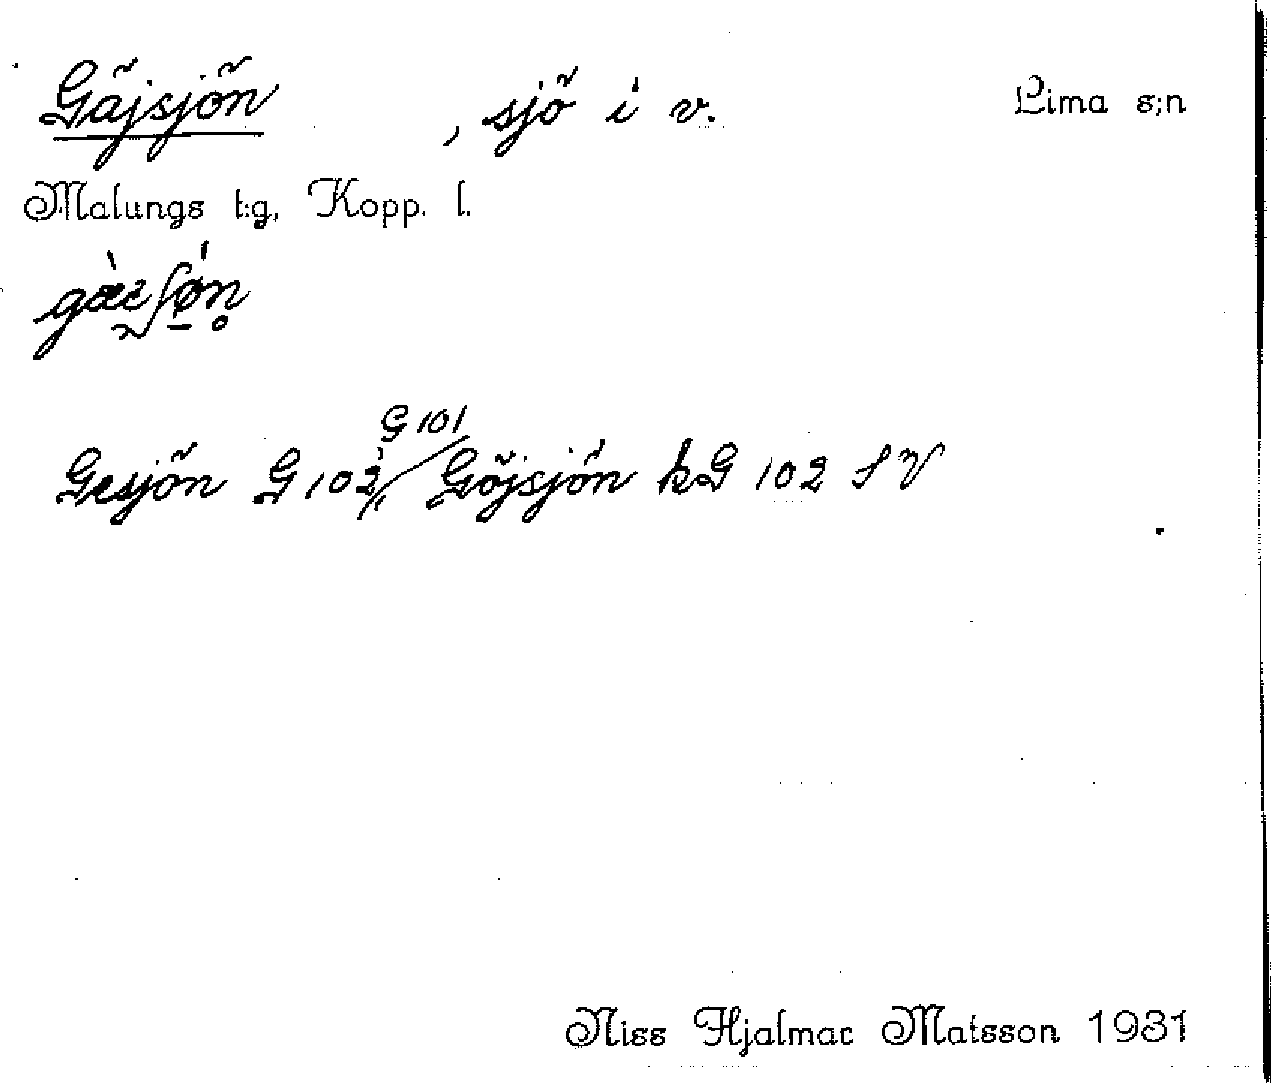 Gäjsjön , sjö i v. Lima s;n
Malungs t:g, Kopp. l.
G 101
Gesjön G 102, Göjsjön kG 102 S V
Niss Hjalmar Matsson 1931